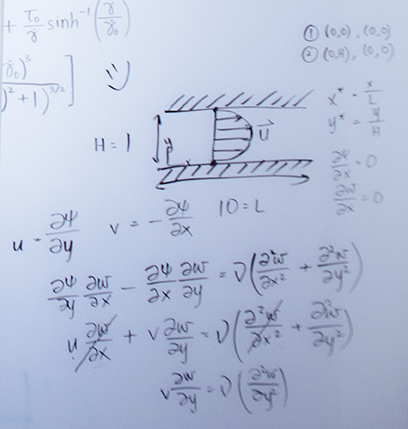 + τ₀/γ̇ sinh⁻¹(γ̇/γ̇₀)
γ̇₀)³
)² + 1)^3/2 ]
① (0,0), (0,0)
② (0,H), (0,0)
x* = x/L
y* = y/H
∂Ψ/∂x = 0
∂w/∂x = 0
H = 1
U
10 = L
u = ∂Ψ/∂y
v = -∂Ψ/∂x
∂Ψ/∂y ∂w/∂x - ∂Ψ/∂x ∂w/∂y = ν(∂²w/∂x² + ∂²w/∂y²)
u ∂w/∂x + v ∂w/∂y = ν(∂²w/∂x² + ∂²w/∂y²)
v ∂w/∂y = ν(∂²w/∂y²)